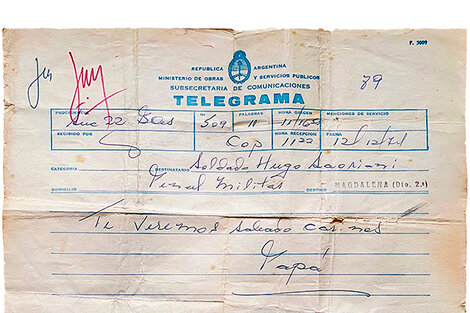 F. 3009
REPUBLICA ARGENTINA
MINISTERIO DE OBRAS Y SERVICIOS PUBLICOS
SUBSECRETARIA DE COMUNICACIONES
79
TELEGRAMA
PROCEDENCIA Nº PALABRAS HORA ORIGEN MENCIONES DE SERVICIO
Suc 22 509 11
RECIBIDO POR HORA RECEPCION FECHA
Cop 1122 12/12/71
CATEGORIA DESTINATARIO Soldado Hugo
DOMICILIO Penal Militar DESTINO MAGDALENA (Dto. 2º)
Te veremos sabado cariños
Papá